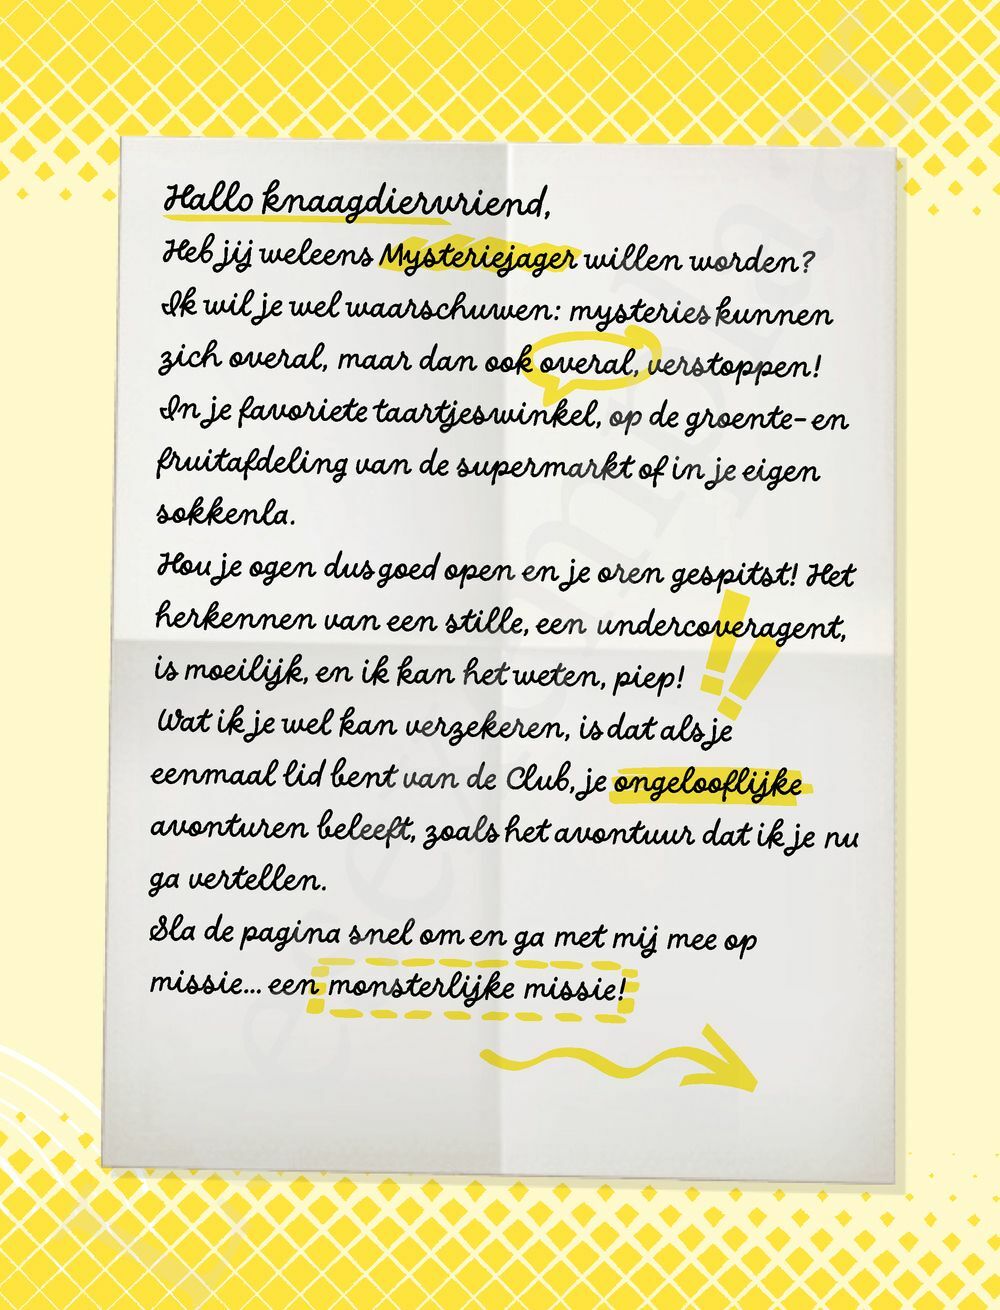 Hallo knaagdiervriend,
Heb jij weleens Mysteriejager willen worden?
Ik wil je wel waarschuwen: mysteries kunnen
zich overal, maar dan ook overal, verstoppen!
In je favoriete taartjeswinkel, op de groente- en
fruitafdeling van de supermarkt of in je eigen
sokkenla.
Hou je ogen dus goed open en je oren gespitst! Het
herkennen van een stille, een undercoveragent,
is moeilijk, en ik kan het weten, piep!
Wat ik je wel kan verzekeren, is dat als je
eenmaal lid bent van de Club, je ongelooflijke
avonturen beleeft, zoals het avontuur dat ik je nu
ga vertellen.
Sla de pagina snel om en ga met mij mee op
missie... een monsterlijke missie!